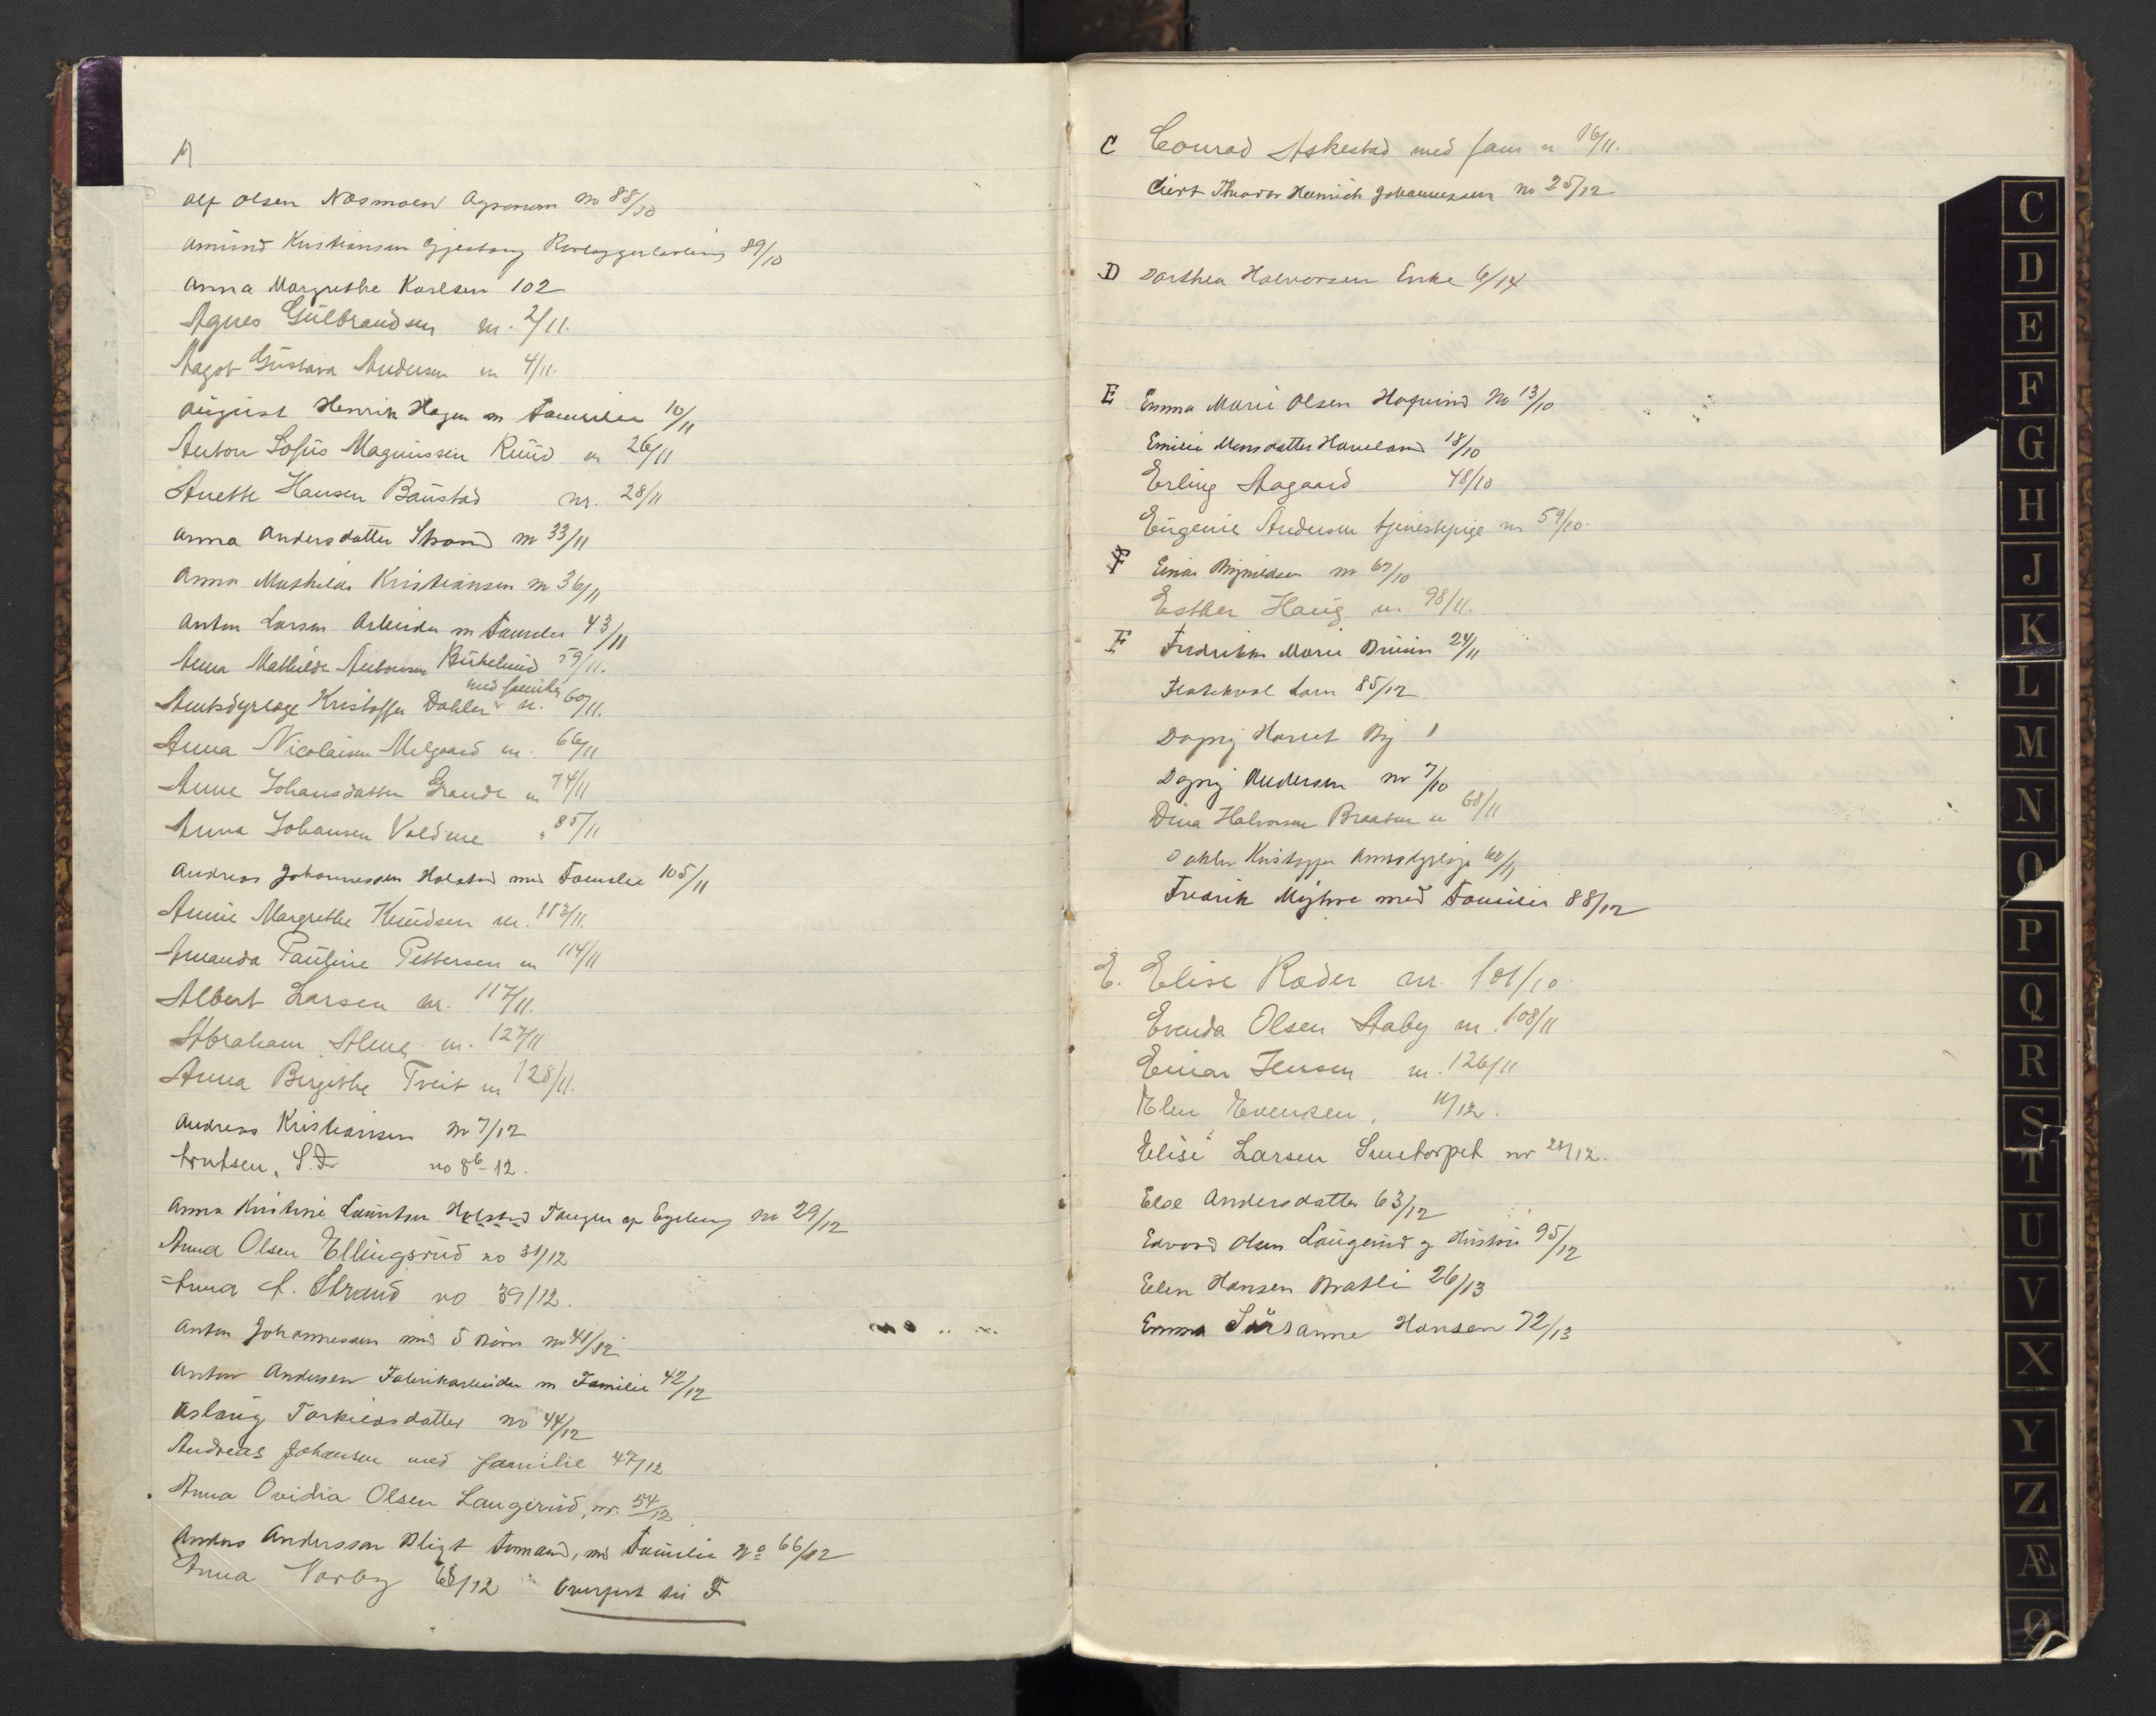 A
Alf Olsen Næsmoen Agronom No 88/10
Amund Kristiansen Gjestang 89/10
Anna Margrethe Karlsen 102
Agnes Gulbrandsen nr. 2/11.
Aagot Gustava Andersen nr 4/11.
August Henrik Hagen m Familie 10/11
Anton Sofus Magnussen Ruud nr 26/11
Anette Hansen Baustad nr. 28/11
Anna Andersdatter Strand nr 33/11
Anna Mathilde Kristiansen nr 36/11
Anton Larsen Arbeider m Familie 43/11
Anna Mathilde Antonsen 59/11.
med familie
Amtsdyrlæge Kristoffer Dahler nr. 60/11.
Anna Nicolaisen Melgaard nr. 66/11
Anne Johansdatter Grande nr 74/11
Anna Johansen Voldene " 85/11
Andreas Johannessen Holstad med Familie 105/11
Annie Margrethe Knudsen nr. 113/11.
Amanda Pauline Pettersen nr 114/11
Albert Larsen nr. 117/11.
Abraham nr. 127/11
Anna Bergithe Tveit nr 128/11.
Andreas Kristiansen nr 7/12
Arntsen, S. F. no 8b-12.
Anna Kristine Lauritsen Holstad no 29/12
Anna Olsen Ellingsrud no 31/12
Anna A. Strand no 39/12.
Anton Johannessen med 5 Børn no 41/12
Anton Andersen Fabrikarbeider m Familie 42/12
Aslaug Tarkielsdatter no 44/12
Andreas Johansen med familie 47/12
Anna Ovidia Olsen Laugerud, nr. 54/12
Anders Andersson Bligt Formand, med Familie No 66/12
Anna Norby 68/12 Overført til F
C Conrad Askestad med fam nr 16/11.
Theodor Heinrich Johannessen No 25/12
D Dorthea Halvorsen Enke 6/14
E Emma Marie Olsen Hagerund No 13/10
Emilie Monsdatter Haveland 18/10
Erling Aagaard 48/10
Eugenie Andersen tjenestepige nr 59/10.
F Einar Brynildsen nr 67/10
Esther Haug nr. 98/11.
F Fredrikke Marie 24/11
Flatekval Lars 85/12
Dagny Harriet Bry 1
Dagny Andersen nr 7/10
Dina Halvorsen Braaten nr 68/11
Dahler Kristoffer Amtsdyrlæge 60/11
Fredrik Myhre med Familie 88/12
E. Elise Roder nr. 101/10.
Evenda Olsen Aaby nr. 108/11
Einar Jensen nr. 126/11
Elen Evensen, 11/12.
Elise Larsen Smetorpet nr 24/12.
Else Andersdatter 63/12
Edvard Olsen Laugerud og Hustru 95/12
Elen Hansen Bratli 26/13
Emma Susanne Hansen 72/13
C
D
E
F
G
H
J
K
L
M
N
O
P
Q
R
S
T
U
V
X
Y
Z
Æ
Ø